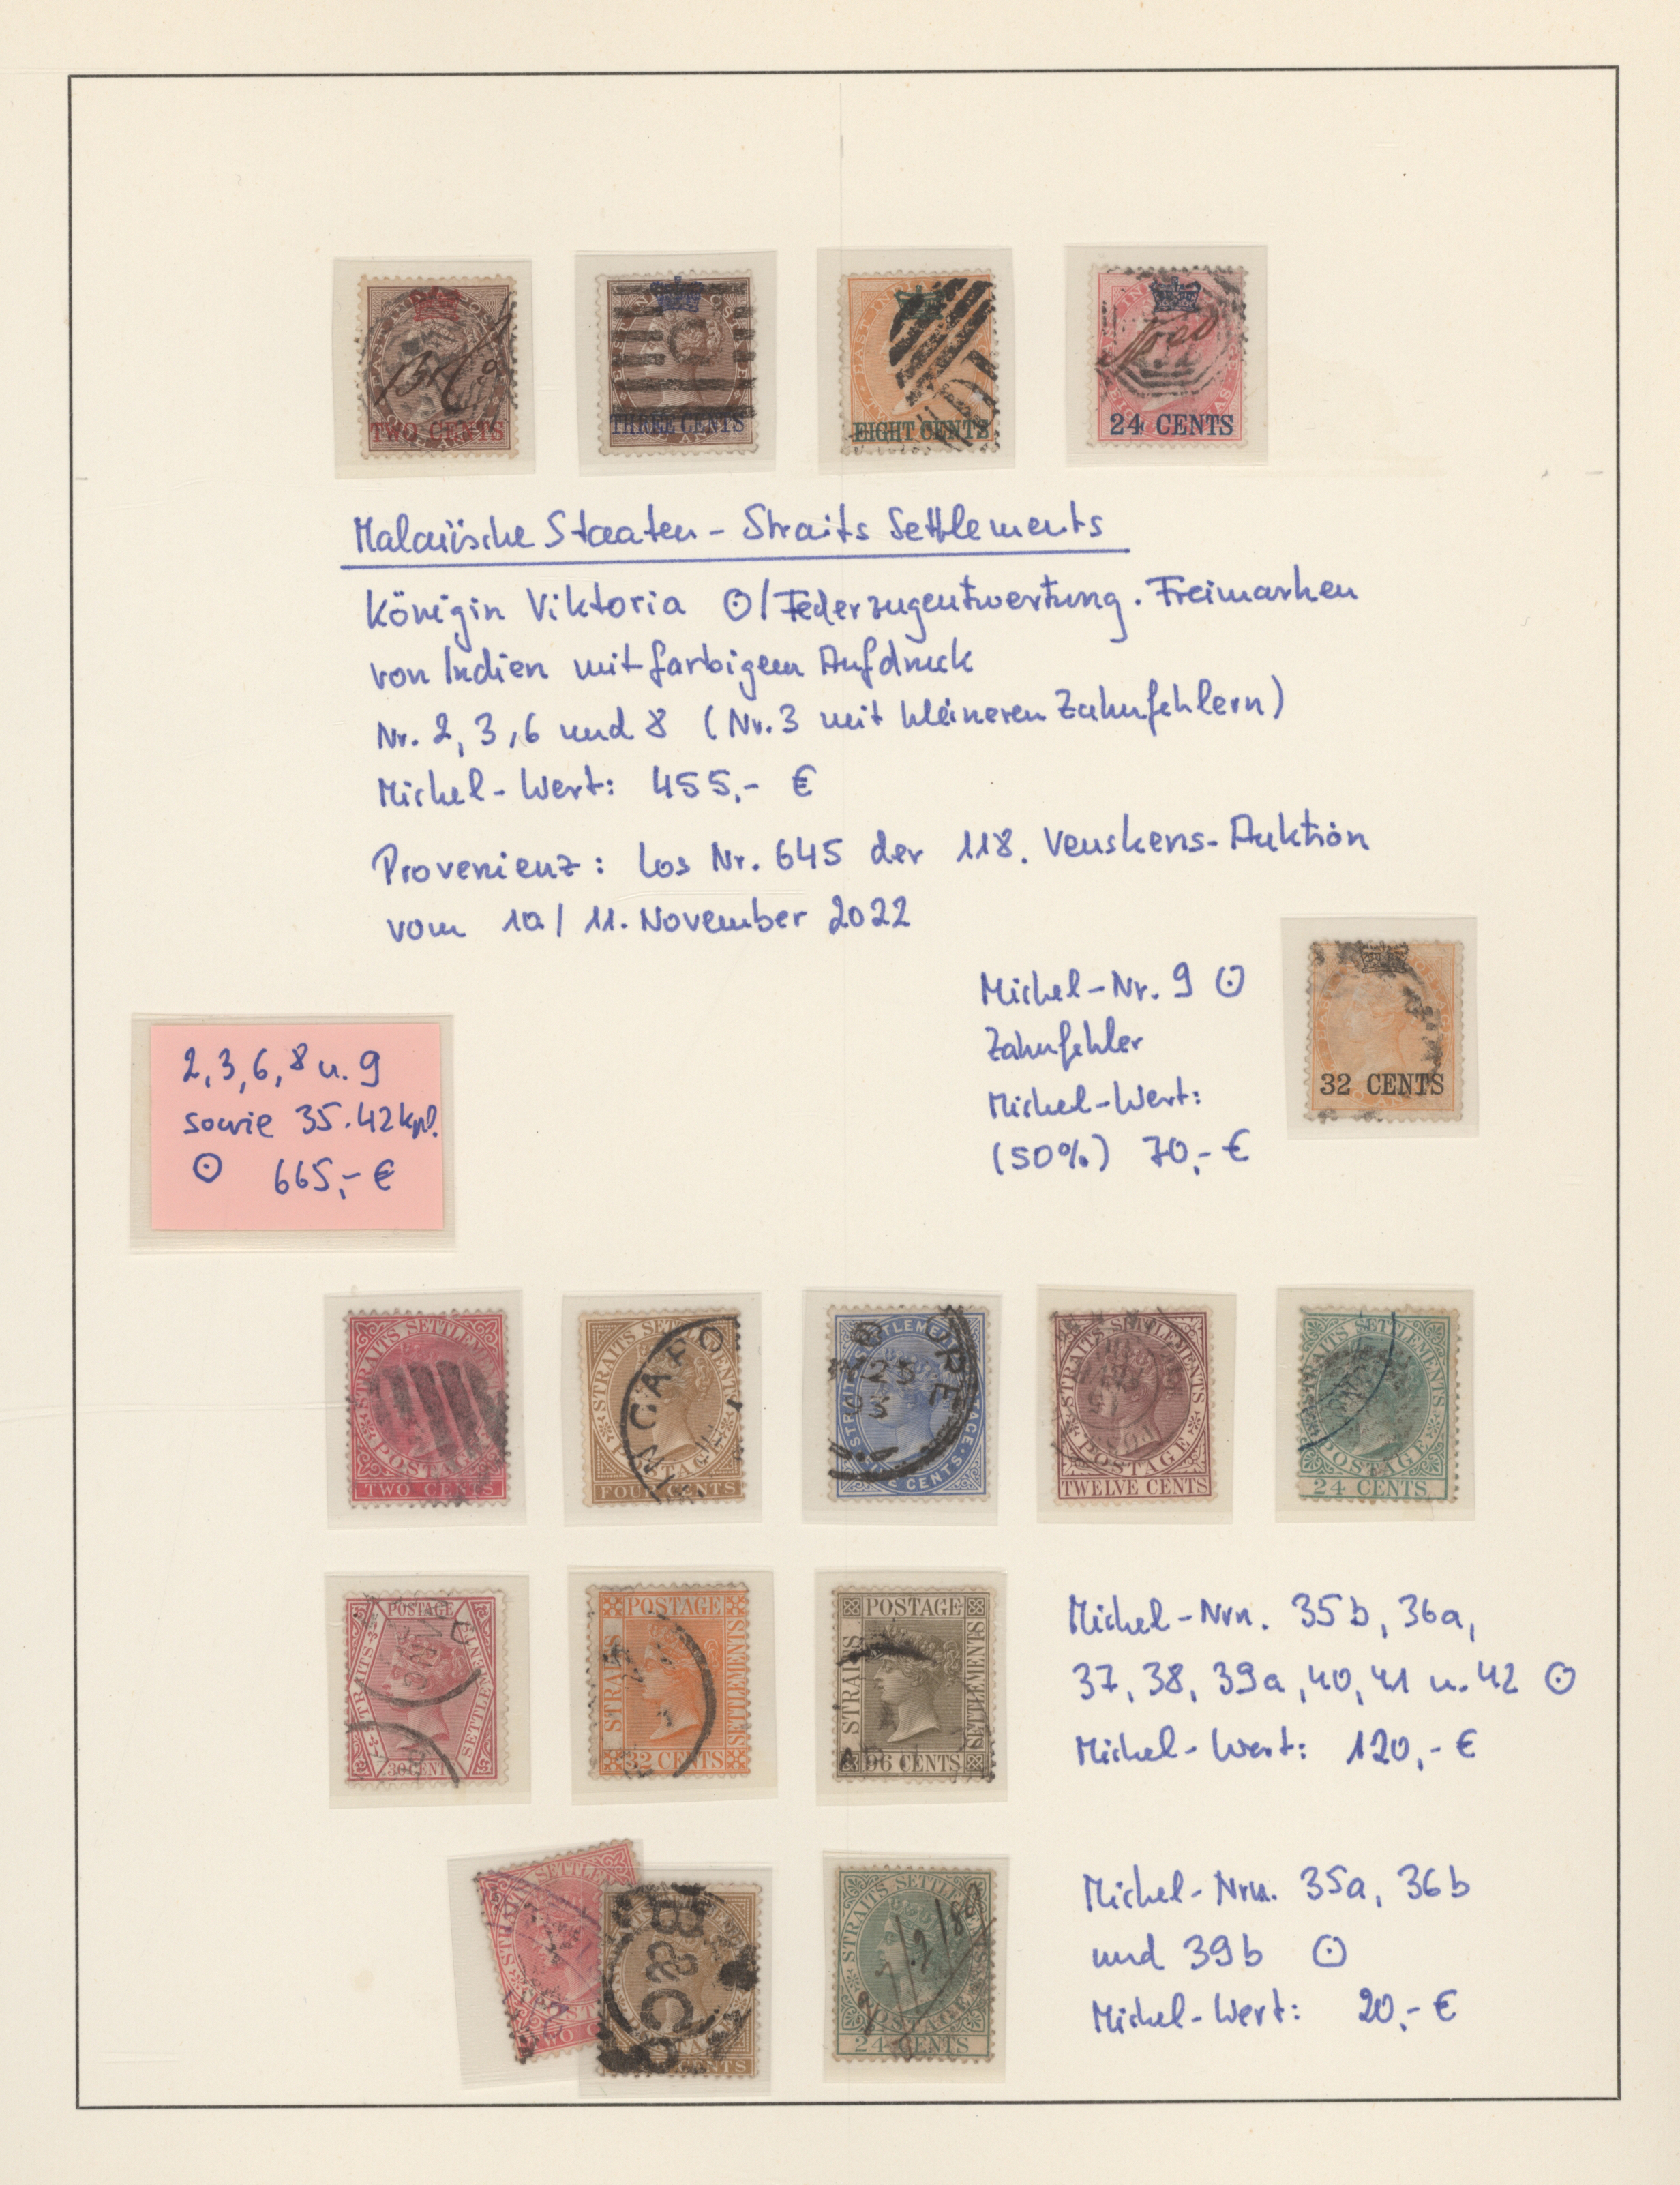 TWO CENTS
THREE CENTS
EIGHT CENTS
24 CENTS
Malaiische Staaten - Straits Settlements
Königin Viktoria ⊙/Federzugentwertung. Freimarken
von Indien mit farbigem Aufdruck
Nr. 2, 3, 6 und 8 (Nr. 3 mit kleineren Zahnfehlern)
Michel-Wert: 455,- €
Provenienz: Los Nr. 645 der 118. Venskens-Auktion
vom 10/11. November 2022
Michel-Nr. 9 ⊙
Zahnfehler
Michel-Wert:
(50%) 70,- €
32 CENTS
2, 3, 6, 8 u. 9
sowie 35-42 kpl.
⊙ 665,- €
STRAITS SETTLEMENTS
POSTAGE
TWO CENTS
STRAITS SETTLEMENTS
FOUR CENTS
STRAITS SETTLEMENTS
CENTS
STRAITS SETTLEMENTS
POSTAGE
TWELVE CENTS
STRAITS SETTLEMENTS
POSTAGE
24 CENTS
POSTAGE
STRAITS
SETTLEMENTS
30 CENTS
POSTAGE
STRAITS
SETTLEMENTS
32 CENTS
POSTAGE
STRAITS
SETTLEMENTS
96 CENTS
Michel-Nrn. 35b, 36a,
37, 38, 39a, 40, 41 u. 42 ⊙
Michel-Wert: 120,- €
TWO C
STRAITS SETTLEMENTS
POSTAGE
24 CENTS
Michel-Nrn. 35a, 36b
und 39b ⊙
Michel-Wert: 20,- €